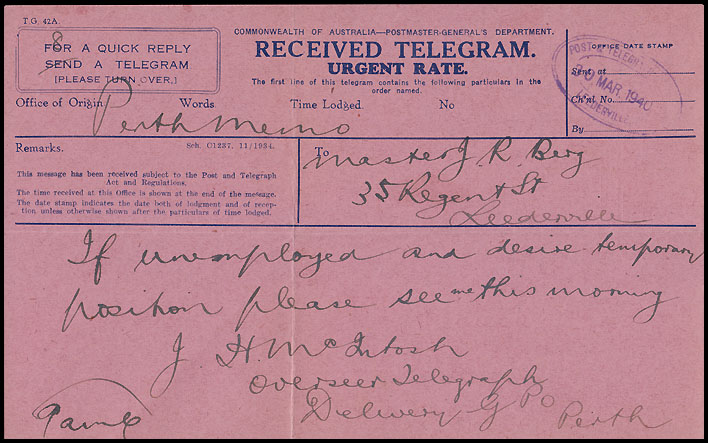 T.G. 42A.
COMMONWEALTH OF AUSTRALIA—POSTMASTER-GENERAL'S DEPARTMENT.
RECEIVED TELEGRAM.
URGENT RATE.
The first line of this telegram contains the following particulars in the order named.
8
FOR A QUICK REPLY
SEND A TELEGRAM
[PLEASE TURN OVER.]
OFFICE DATE STAMP
Sent at
Ch'al No.
By
POST & TELEGRAPH
29 MAR 1940
LEEDERVILLE
Office of Origin. Words. Time Lodged. No
Perth Memo
Remarks. Sch. C1237. 11/1934.
This message has been received subject to the Post and Telegraph
Act and Regulations.
The time received at this Office is shown at the end of the message.
The date stamp indicates the date both of lodgment and of recep-
tion unless otherwise shown after the particulars of time lodged.
To
Master J. R. Berg
35 Regent St
Leederville
If unemployed and desire temporary
position please see me this morning
J H. McIntosh
Overseer Telegraph
Delivery G PO Perth